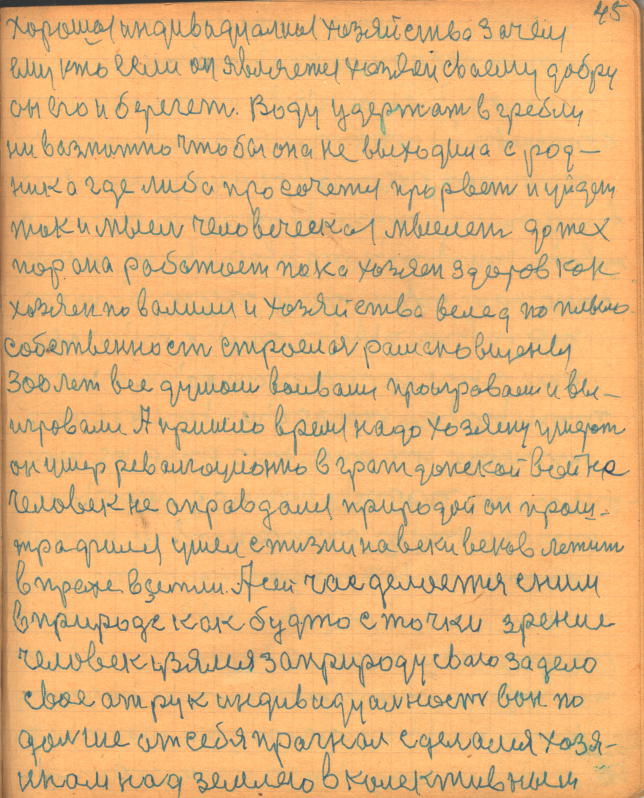 45
хороша индивидуална хозяйства зачем
ему кто если он является хозяей своему добру
он его и берегет. Воду удержат в греблу
ни вазможно чтобы она не выходила с род-
ника где либа просочется прорвет и уйдет
так и мысл человеческа мыслет до тех
пор она работает пака хозяен здоров как
хозяен по валили и хозяйства вслед по плыло
собственност строелая
300 лет все думали воивали проигровали и вы-
игровали. А пришло время надо хозяену умерет
он умер революционно в граждонской войне
человек не аправдался природой он праш-
трафился ушел с жизни на веки веков лежит
в прахе в земли. А сей час делоется с ним
в природе как будто с точки зрение
человек взялся за природу сваю за дело
свое ат рук индивидуалност вон по
далше от себя прагнал сделался хозя-
ином над землею в колективным